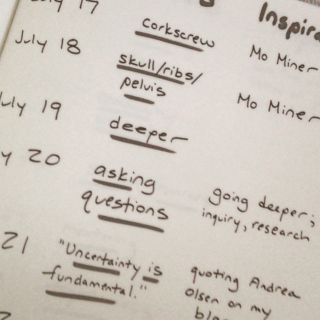 July 17 corkscrew Mo Miner
July 18 skull/ribs/
pelvis Mo Miner
July 19 deeper
20 asking going deeper;
questions inquiry, research
21 "Uncertainty is quoting Andrea
fundamental." Olsen on my